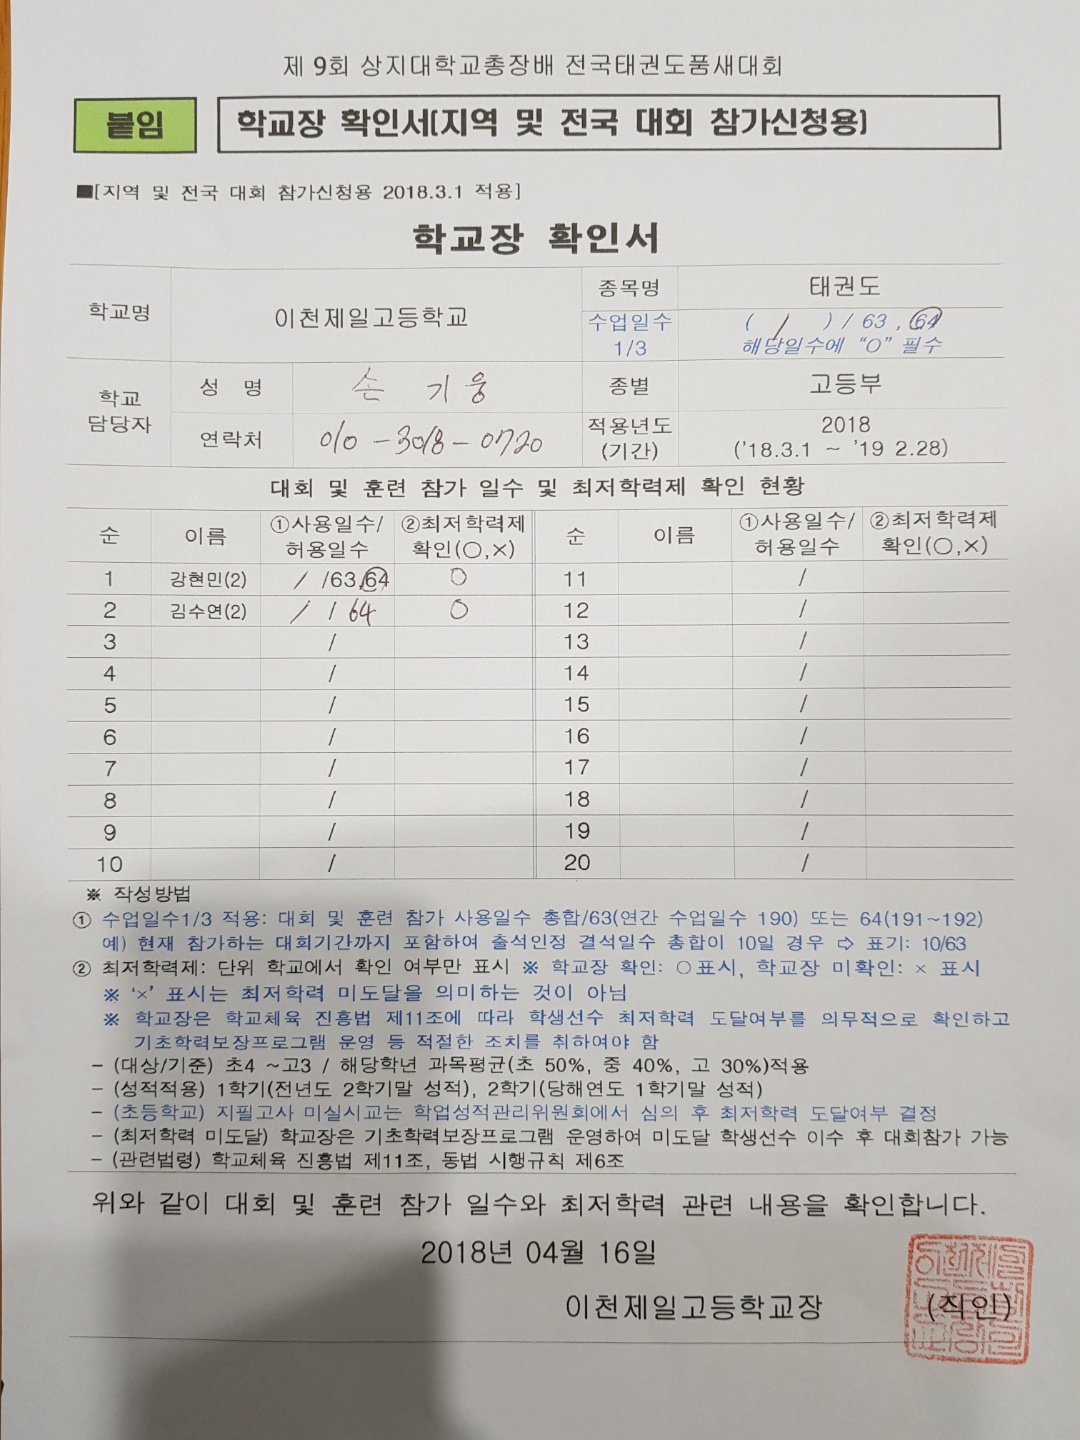 제 9회 상지대학교총장배 전국태권도품새대회
붙임 학교장 확인서(지역 및 전국 대회 참가신청용)
■[지역 및 전국 대회 참가신청용 2018.3.1 적용]
학교장 확인서
학교명 이천제일고등학교 종목명 태권도
수업일수 1/3 ( / ) / 63 , 64
해당일수에 “O” 필수
학교 담당자 성 명 손 기웅 종별 고등부
연락처 010-3018-0720 적용년도 (기간) 2018
('18.3.1 ~ '19 2.28)
대회 및 훈련 참가 일수 및 최저학력제 확인 현황
순 이름 ①사용일수/허용일수 ②최저학력제 확인(○,×) 순 이름 ①사용일수/허용일수 ②최저학력제 확인(○,×)
1 강현민(2) / /63,64 ○ 11 /
2 김수연(2) / / 64 ○ 12 /
3 / 13 /
4 / 14 /
5 / 15 /
6 / 16 /
7 / 17 /
8 / 18 /
9 / 19 /
10 / 20 /
※ 작성방법
① 수업일수1/3 적용: 대회 및 훈련 참가 사용일수 총합/63(연간 수업일수 190) 또는 64(191~192)
예) 현재 참가하는 대회기간까지 포함하여 출석인정 결석일수 총합이 10일 경우 ⇨ 표기: 10/63
② 최저학력제: 단위 학교에서 확인 여부만 표시 ※ 학교장 확인: ○표시, 학교장 미확인: × 표시
※ ‘×’ 표시는 최저학력 미도달을 의미하는 것이 아님
※ 학교장은 학교체육 진흥법 제11조에 따라 학생선수 최저학력 도달여부를 의무적으로 확인하고
기초학력보장프로그램 운영 등 적절한 조치를 취하여야 함
– (대상/기준) 초4 ~고3 / 해당학년 과목평균(초 50%, 중 40%, 고 30%)적용
– (성적적용) 1학기(전년도 2학기말 성적), 2학기(당해연도 1학기말 성적)
– (초등학교) 지필고사 미실시교는 학업성적관리위원회에서 심의 후 최저학력 도달여부 결정
– (최저학력 미도달) 학교장은 기초학력보장프로그램 운영하여 미도달 학생선수 이수 후 대회참가 가능
– (관련법령) 학교체육 진흥법 제11조, 동법 시행규칙 제6조
위와 같이 대회 및 훈련 참가 일수와 최저학력 관련 내용을 확인합니다.
2018년 04월 16일
이천제일고등학교장 (직인)